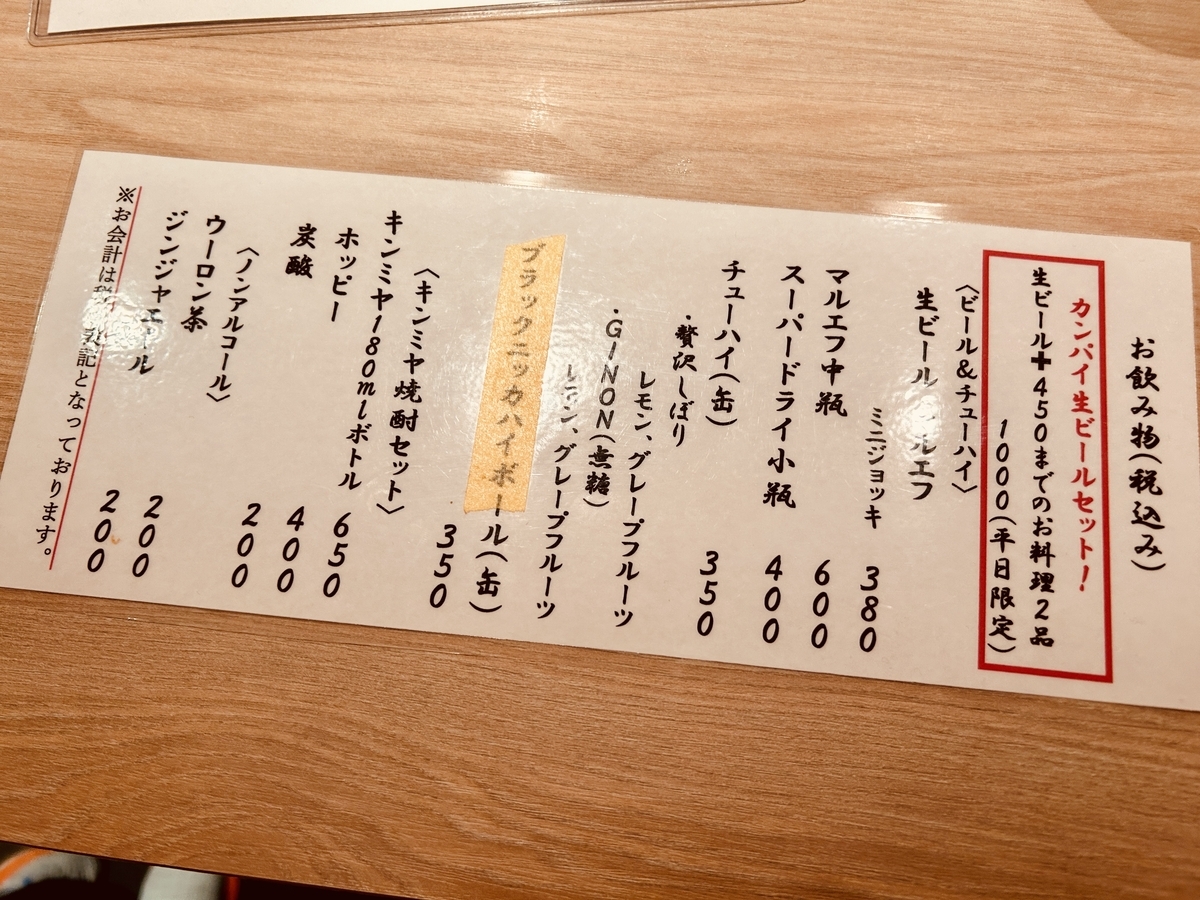 お飲み物(税込み)
カンパイ生ビールセット!
生ビール+450までのお料理2品
1000(平日限定)
〈ビール&チューハイ〉
生ビール ルエフ
ミニジョッキ 380
マルエフ中瓶 600
スーパードライ小瓶 400
チューハイ(缶) 350
・贅沢しぼり
レモン、グレープフルーツ
・GINON(無糖)
レモン、グレープフルーツ
ブラックニッカハイボール(缶)
350
〈キンミヤ焼酎セット〉
キンミヤ180mlボトル 650
ホッピー 400
炭酸 200
〈ノンアルコール〉
ウーロン茶 200
ジンジャエール 200
※お会計は税 表記となっております。